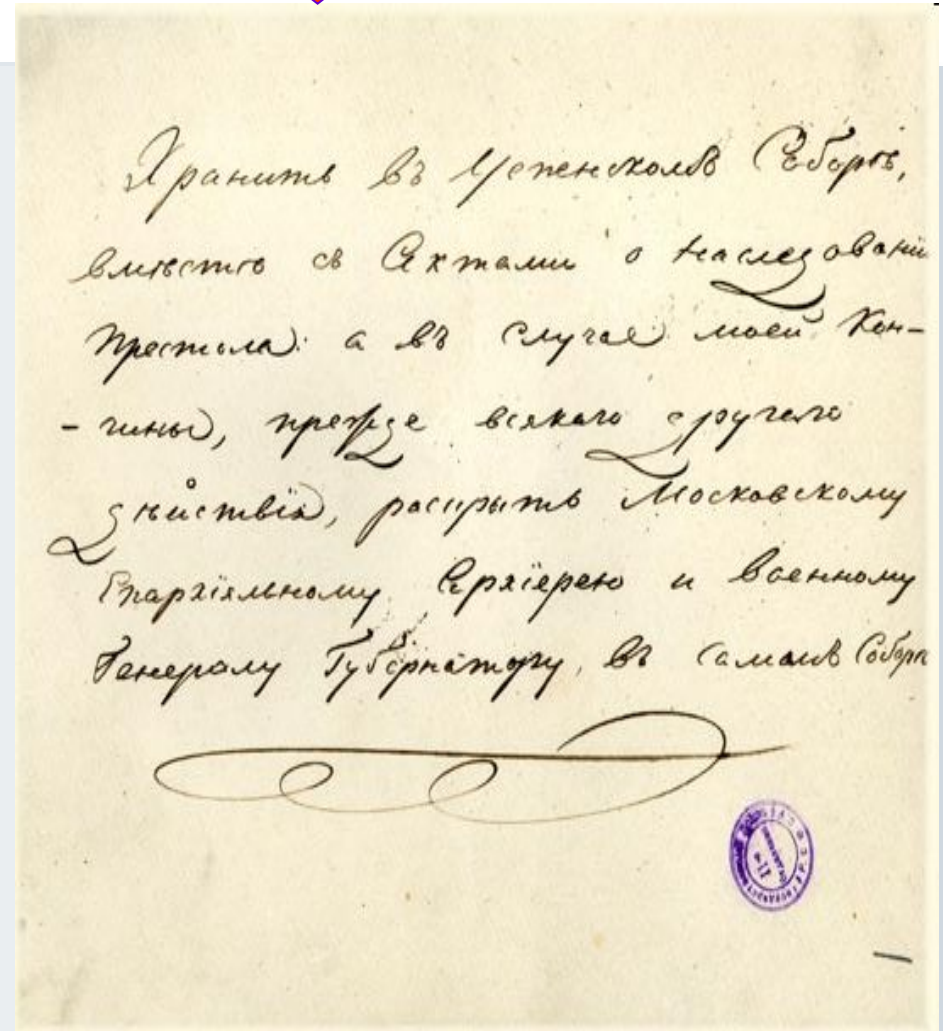 Хранить въ Успенскомъ Соборѣ,
вмѣстѣ съ Актами о Наследовании
Престола: а въ случае моей Кон-
-чины, прежде всякаго другаго
дѣйствїя, раскрыть Московскому
Епархїяльному Архїерею и Военному
Генералу Губернатору, въ самомъ Соборѣ